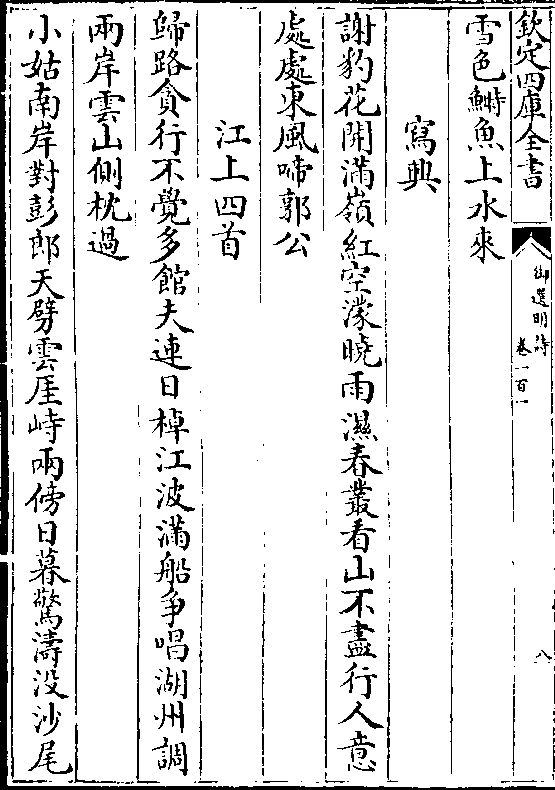 欽定四庫全書
御選明詩
卷一百一
八
雪色鰣魚上水來
寫興
謝豹花開滿嶺紅空濛曉雨濕春叢看山不盡行人意
處處東風啼郭公
江上四首
歸路貪行不覺多館夫連日棹江波滿船争唱湖州調
兩岸雲山側枕過
小姑南岸對彭郎天劈雲厓峙兩傍日暮驚濤没沙尾